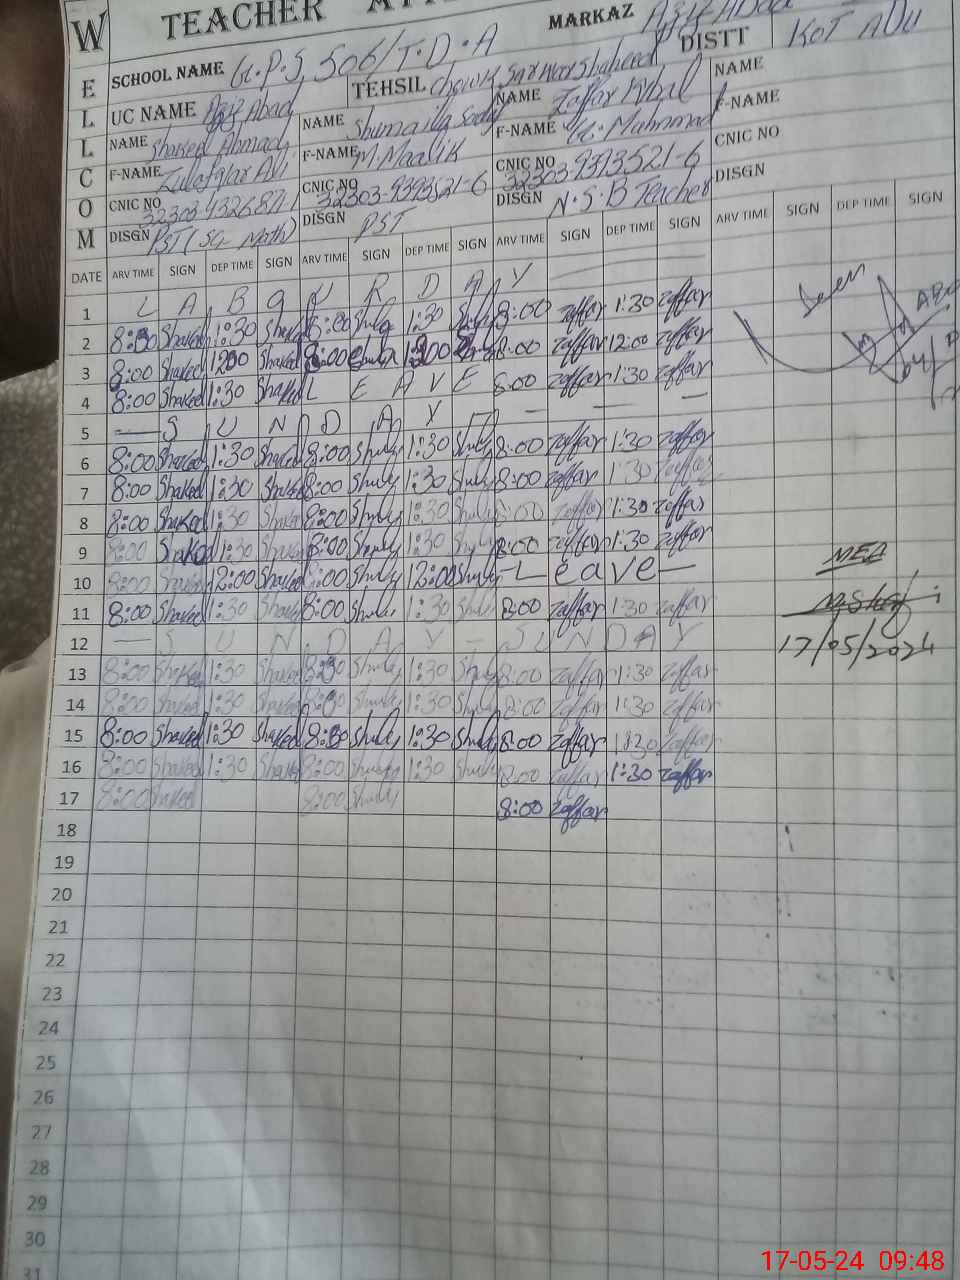 W TEACHER
MARKAZ Aziz Abad
E SCHOOL NAME G.P.S 506/T.D.A TEHSIL Chowk Sarwar Shaheed DISTT KOT ADU
L UC NAME Aziz Abad
L NAME Shakeel Ahmad NAME Shumaila NAME Zaffar Iqbal NAME
C F-NAME Zulafqar Ali F-NAME M.Maalik F-NAME Gh. Mahmmad F-NAME
O CNIC NO CNIC NO 32303-9393521-6 CNIC NO 32303-9393521-6 CNIC NO
M DISGN PST (SG Math) DISGN PST DISGN N.S.B Teacher DISGN
DATE ARV TIME SIGN DEP TIME SIGN ARV TIME SIGN DEP TIME SIGN ARV TIME SIGN DEP TIME SIGN ARV TIME SIGN DEP TIME SIGN
1 L A B O U R D A Y
2 8:00 Shakeel 1:30 Shakeel 8:00 1:30 8:00 zaffar 1:30 zaffar
3 8:00 Shakeel 1200 Shakeel 8:00 8:00 zaffar 12:00 zaffar
4 8:00 Shakeel 1:30 Shakeel L E A V E 8:00 zaffar 1:30 zaffar
5 — S U N D A Y — — — —
6 8:00 Shakeel 1:30 Shakeel 8:00 Shuly 1:30 Shuly 8:00 zaffar 1:30 zaffar
7 8:00 Shakeel 1:30 Shakeel 8:00 Shuly 1:30 Shuly 8:00 zaffar 1:30 zaffar
8 8:00 Shakeel 1:30 Shakeel 8:00 Shuly 1:30 Shuly 8:00 zaffar 1:30 zaffar
9 8:00 Shakeel 1:30 Shakeel 8:00 Shuly 1:30 Shuly 8:00 zaffar 1:30 zaffar
10 8:00 Shakeel 12:00 Shakeel 8:00 Shuly 12:00 Shuly — Leave —
11 8:00 Shakeel 1:30 Shakeel 8:00 Shuly 1:30 Shuly 8:00 zaffar 1:30 zaffar
12 — S U N D A Y — S U N D A Y
13 8:00 Shakeel 1:30 Shakeel 8:30 Shuly 1:30 Shuly 8:00 zaffar 1:30 zaffar
14 8:00 Shakeel 1:30 Shakeel 8:00 Shuly 1:30 Shuly 8:00 zaffar 1:30 zaffar
15 8:00 Shakeel 1:30 Shakeel 8:30 Shuly 1:30 Shuly 8:00 zaffar 1:30 zaffar
16 8:00 Shakeel 1:30 Shakeel 8:00 Shuly 1:30 Shuly 8:00 zaffar 1:30 zaffar
17 8:00 Shakeel 8:00 Shuly 8:00 zaffar
Seen
MEA
17/05/2024
18
19
20
21
22
23
24
25
26
27
28
29
30
31
17-05-24 09:48